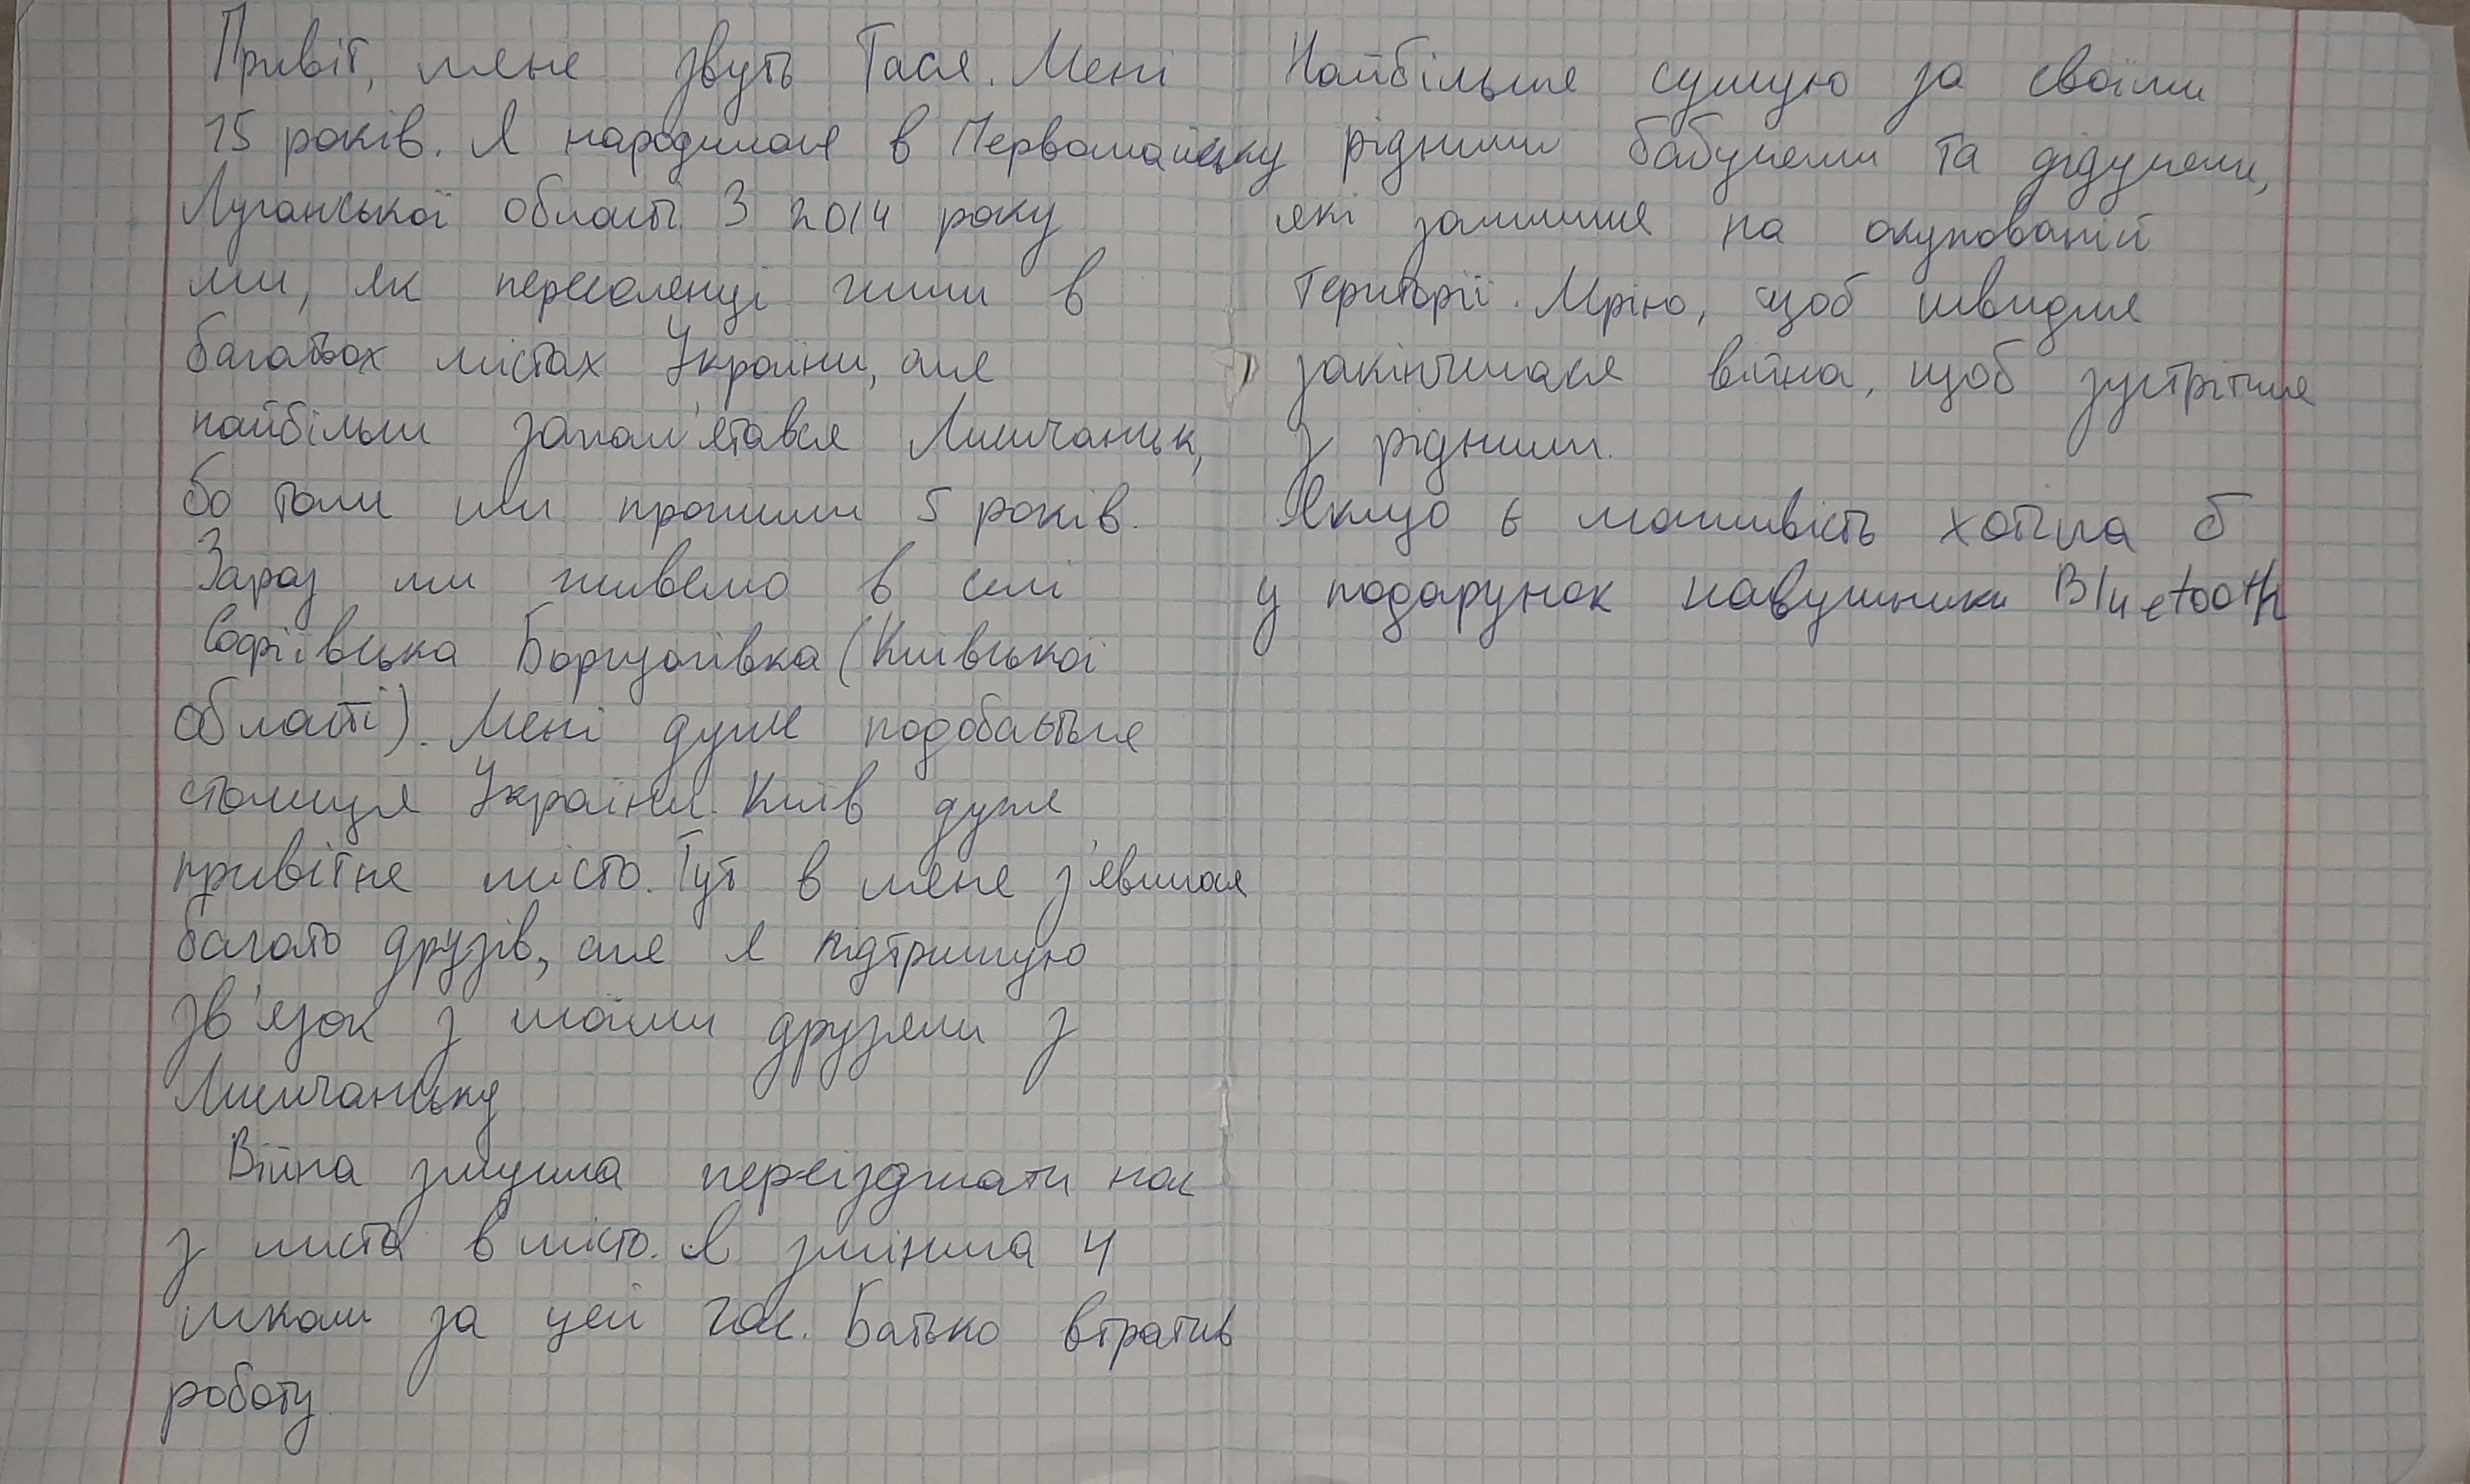 Привіт, мене звуть Тася. Мені
15 років. Я народилася в Первомайську
Луганської області. З 2014 року
ми, як переселенці жили в
багатьох містах України, але
найбільш запам'ятався Лисичанськ,
бо там ми прожили 5 років.
Зараз ми живемо в селі
Софіївська Борщагівка (Київської
області). Мені дуже подобається
столиця України. Київ дуже
привітне місто. Тут в мене з'явилася
багато друзів, але я підтримую
зв'язок з моїми друзями з
Лисичанську
Війна змусила переїзджати нас
з міста в місто. Я змінила 4
школи за цей час. Батько втратив
роботу.
Найбільше сумую за своїми
рідними бабусями та дідусями,
які залишися на окупованій
території. Мрію, щоб швидше
закінчилася війна, щоб зустрітися
з рідними.
Якщо є можливість хотіла б
у подарунок навушники Bluetooth